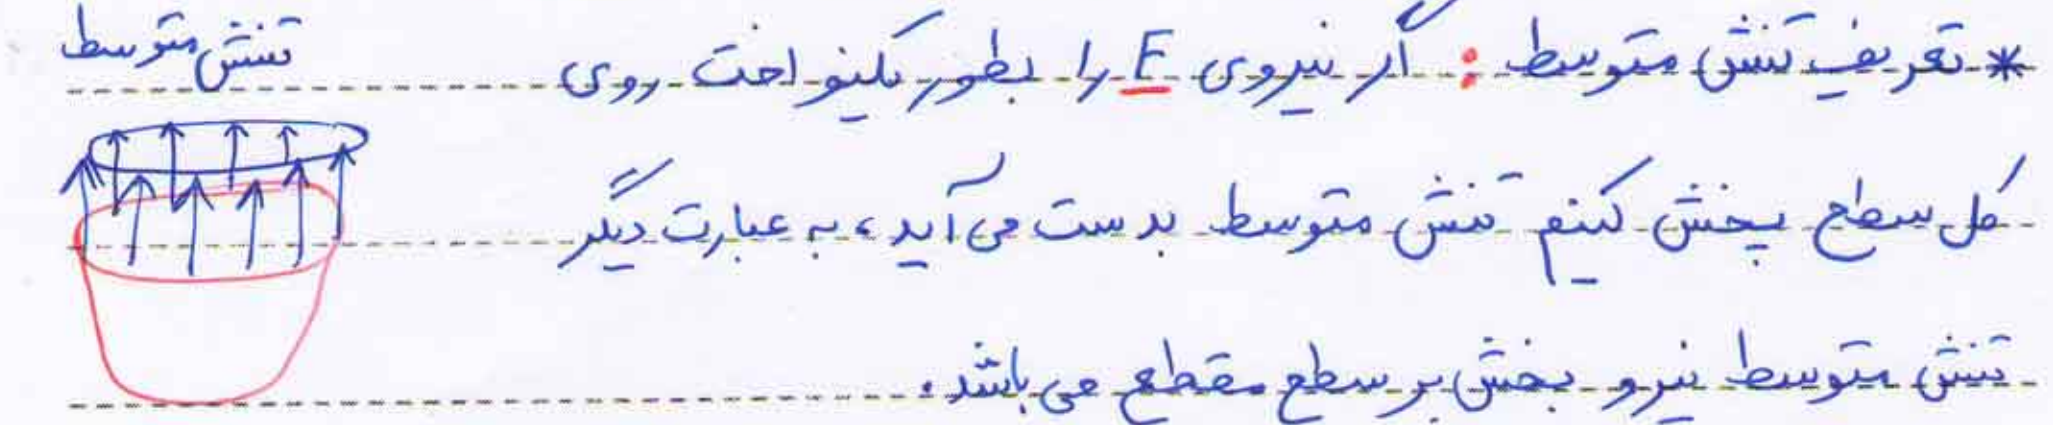 * تعریف تنش متوسط : اگر نیروی F را بطور یکنواخت روی
کل سطح پخش کنیم تنش متوسط بدست می‌آید، به عبارت دیگر
تنش متوسط نیرو بخش بر سطح مقطع می‌باشد.
تنش متوسط